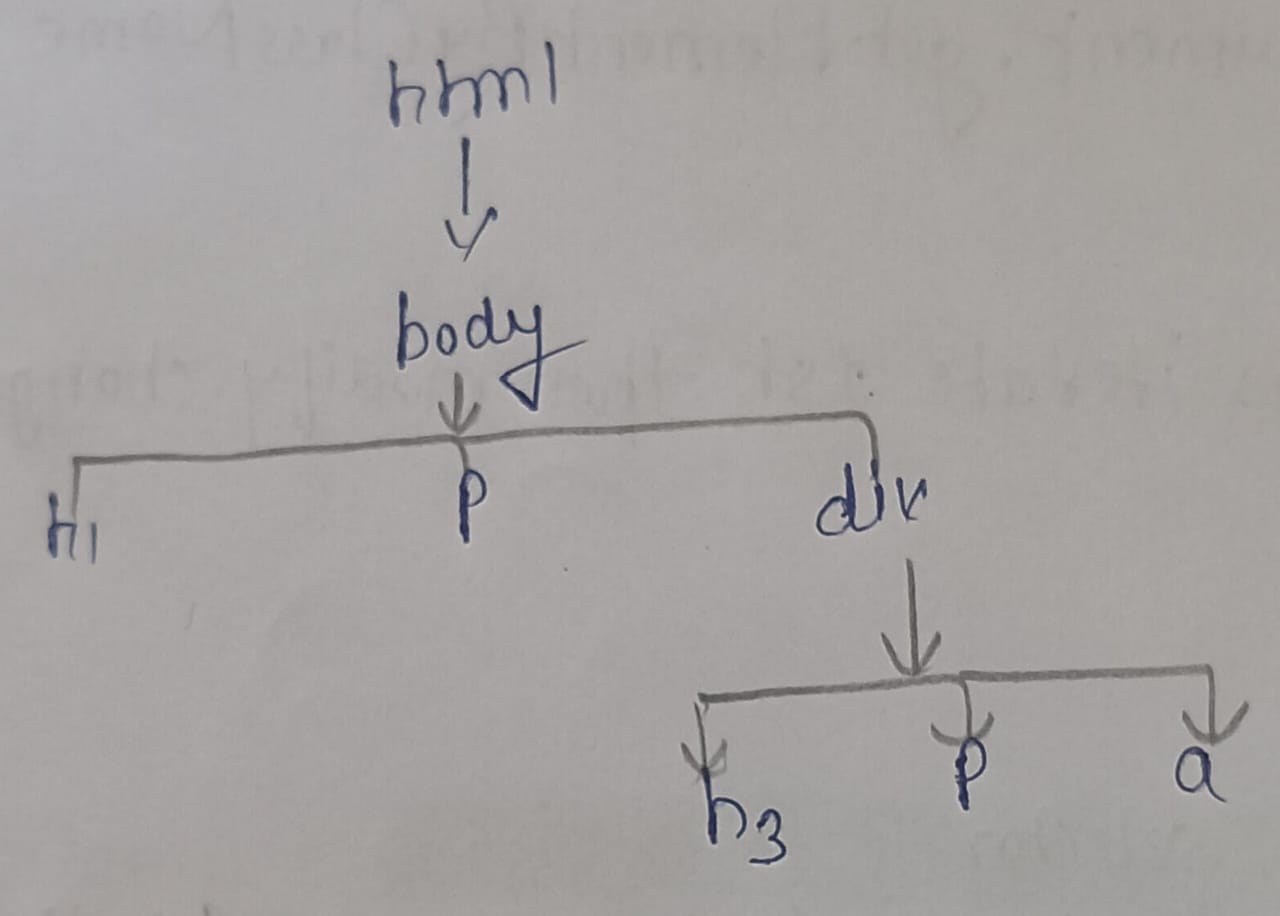 html
body
h1 p div
h3 p a